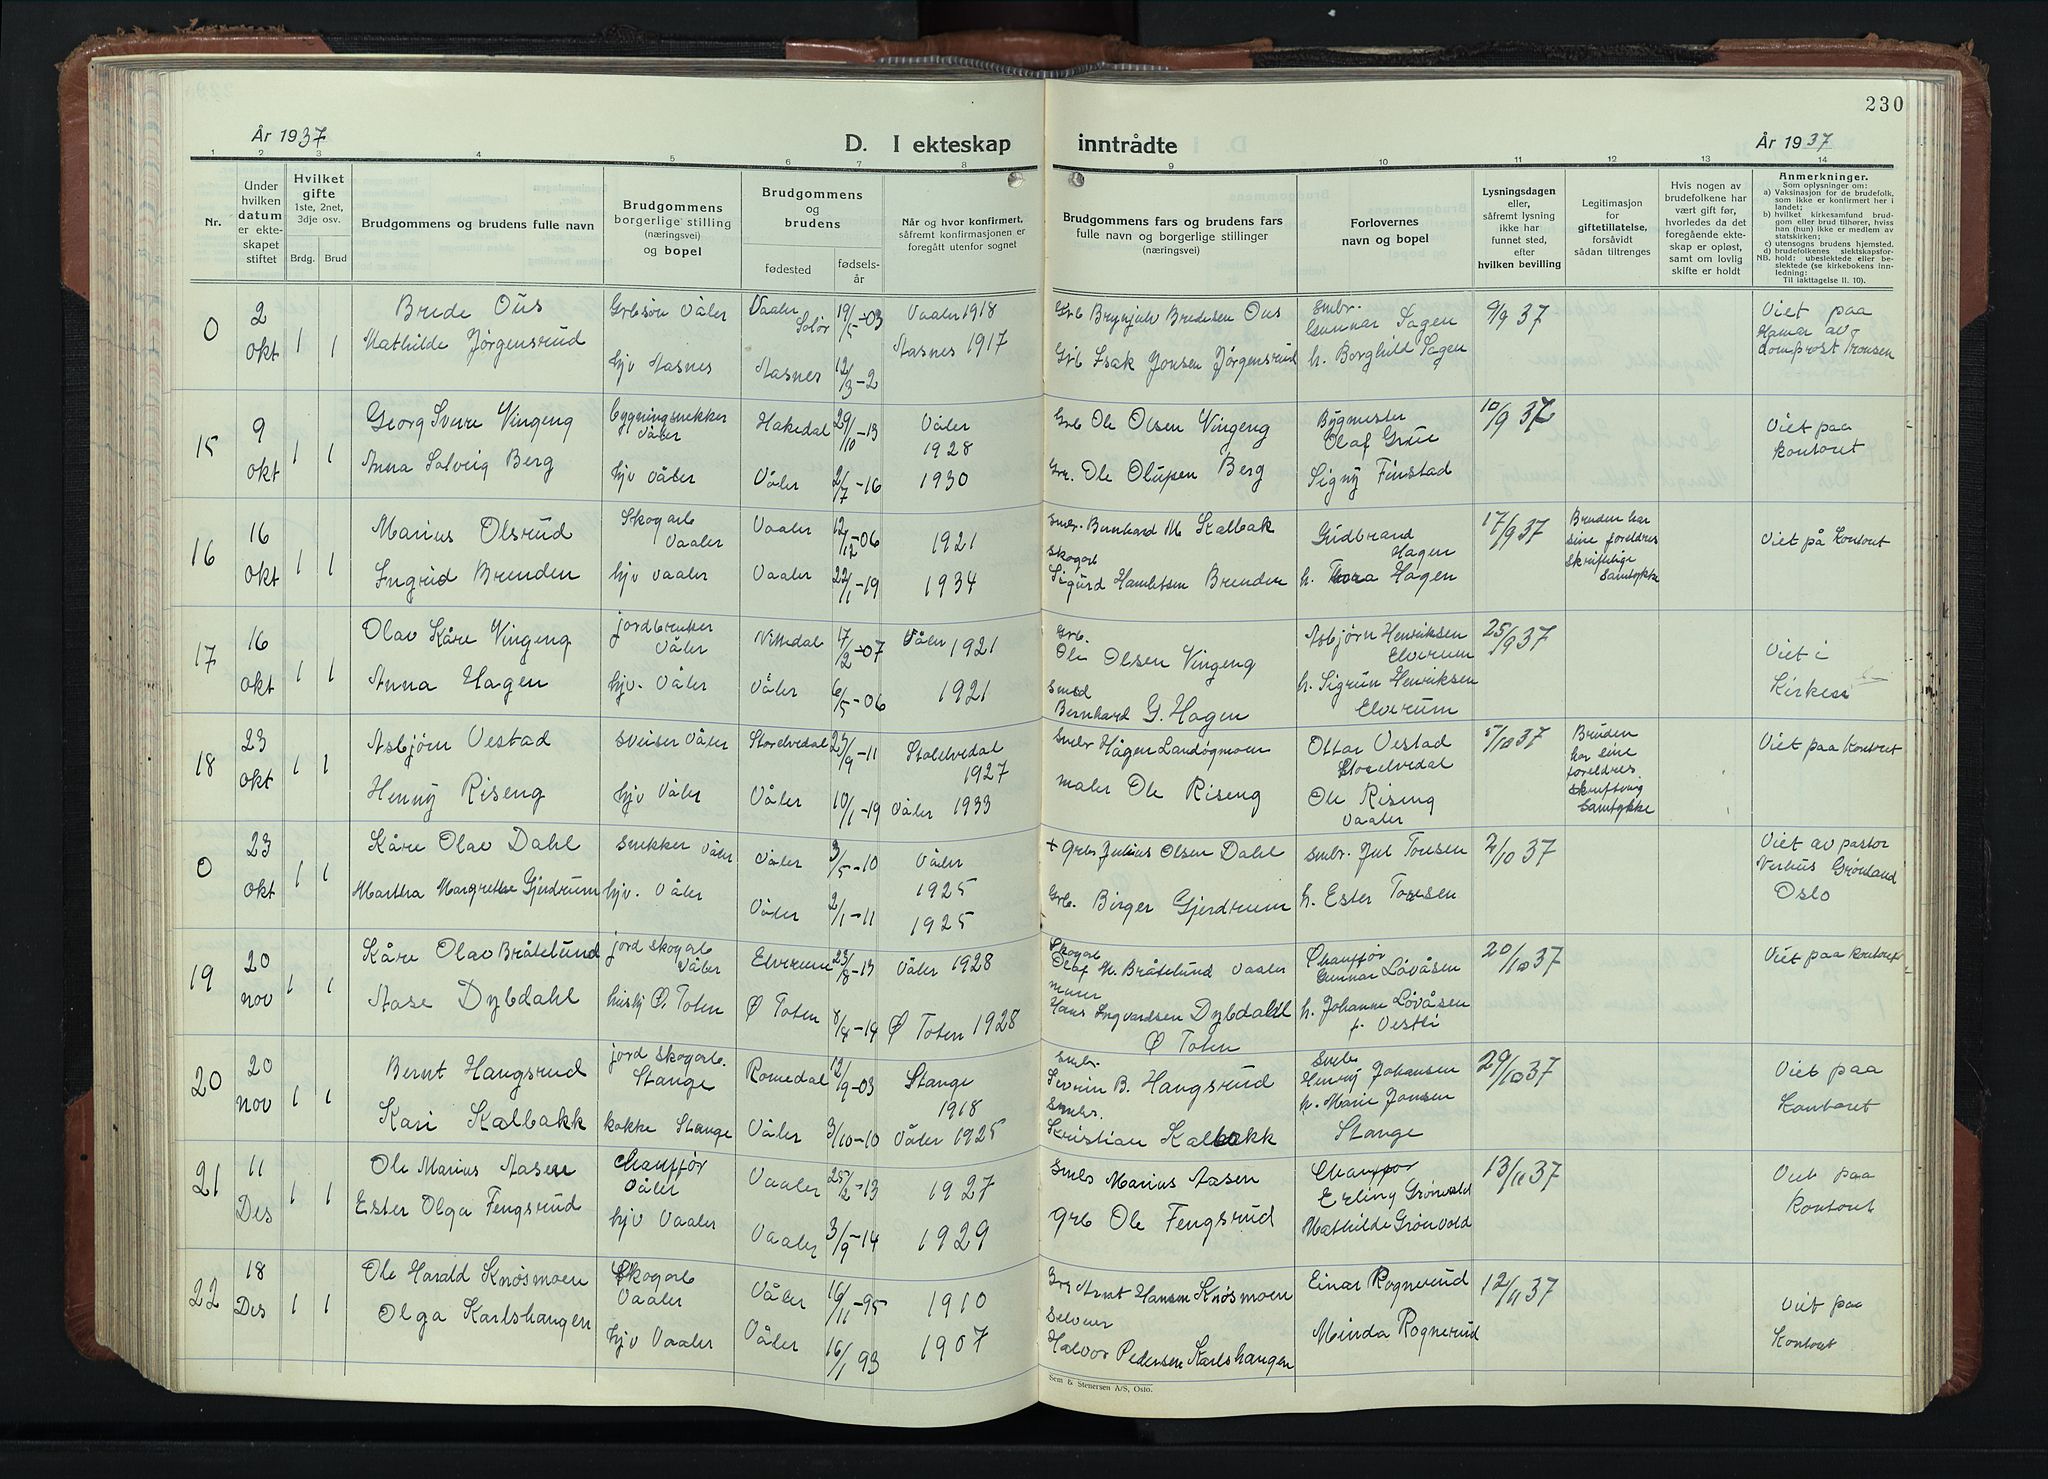 230
År 1937
D. I ekteskap inntrådte
År 1937
1 2 3 4 5 6 7 8 9 10 11 12 13 14
Nr.
Under hvilken datum er ekteskapet stiftet
Hvilket gifte 1ste, 2net, 3dje osv.
Brdg. Brud
Brudgommens og brudens fulle navn
Brudgommens borgerlige stilling (næringsvei) og bopel
Brudgommens og brudens
fødested
fødselsår
Når og hvor konfirmert, såfremt konfirmasjonen er foregått utenfor sognet
Brudgommens fars og brudens fars fulle navn og borgerlige stillinger (næringsvei)
Forlovernes navn og bopel
Lysningsdagen eller, såfremt lysning ikke har funnet sted, efter hvilken bevilling
Legitimasjon for giftetillatelse, forsåvidt sådan tiltrenges
Hvis nogen av brudefolkene har vært gift før, hvorledes da det foregående ekteskap er opløst, samt om lovlig skifte er holdt
Anmerkninger.
Som oplysninger om:
a) Vaksinasjon for de brudefolk, som ikke er konfirmert her i landet;
b) hvilket kirkesamfund brudgom eller brud tilhører, hvis han (hun) ikke er medlem av statskirken;
c) utensogns brudens hjemsted.
d) brudefolkenes slektskapsforhold: ubeslektede eller beslektede (se kirkebokens innledning:
NB. Til iakttagelse II. 10).
0 2 okt 1 1 Brede Ous Grbsøn Våler Vaaler Solør 19/5-03 Vaaler 1918 Grb Brynjulv Bredesen Ous Smbr. Gunnar Sagen 9/9 37 Viet paa Hamar av domprost Tronsen
Mathilde Jørgensrud hjv Aasnes Aasnes 12/3-2 Aasnes 1917 Grb Isak Jonsen Jørgensrud h. Borghild Sagen
15 9 okt 1 1 Georg Sverre Vingeng bygningsnekker Våler Hakedal 29/10-13 Våler 1928 Grb Ole Olsen Vingeng Bygmester Olaf Grue 10/9 37 Viet paa kontoret
Anna Solveig Berg hjv Våler Våler 2/7-16 1930 Gr. Ole Olupen Berg Signy Finstad
16 16 okt 1 1 Marius Olsrud Skogarb Vaaler Vaaler 12/12-06 1921 Smbr. Bernhard M Kalbak Gudbrand Hagen 17/9 37 Bruden har sine foreldres skriftelige samtykke Viet på kontoret
Ingrid Brenden hjv Vaaler Vaaler 22/1-19 1934 Skogarb Sigurd Hamletsen Brenden h. Thora Hagen
17 16 okt 1 1 Olav Kåre Vingeng jordbruker Våler Nittedal 17/2-07 Våler 1921 Grb. Ole Olsen Vingeng Asbjørn Henriksen Elverum 25/9 37 Viet i Kirken
Anna Hagen hjv. Våler Våler 6/5-06 1921 Smed Bernhard G. Hagen h. Sigrun Henriksen Elverum
18 23 okt 1 1 Asbjørn Vestad sveiser Våler Storelvedal 23/9-11 Storelvedal 1927 Smbr Hågen Landøgmoen Ottar Vestad Storelvedal 5/10 37 Bruden har sine foreldres skriftelig samtykke Viet paa kontoret
Henny Riseng hjv Våler Våler 10/1-19 Våler 1933 maler Ole Riseng Ole Riseng Vaaler
0 23 okt 1 1 Kåre Olav Dahl snekker Våler Våler 3/5-10 Våler 1925 + grb Julius Olsen Dahl Smbr. Jul Toresen 2/10 37 Viet av pastor Verhus Grønland Oslo
Martha Margrethe Gjerdrum hjv. Våler Våler 2/1-11 1925 Grb. Birger Gjerdrum h. Ester Toresen
19 20 nov 1 1 Kåre Olav Bråtelund jord skogarb Våler Elverum 23/8-13 Våler 1928 Skogarb Olaf M. Bråtelund Vaaler Chauffør Gunnar Løvåsen 20/10 37 Viet paa kontoret
Aase Dybdahl hushj Ø. Toten Ø Toten 8/4-14 Ø Toten 1928 murer Hans Ingvardsen Dybdahl Ø Toten h. Johanne Løvåsen f. Vestli
20 20 nov 1 1 Bernt Haugsrud jord skogarb. Stange Romedal 12/9-03 Stange 1918 Smbr. Severin B. Haugsrud Smbr Henry Johansen 29/10 37 Viet paa Kontoret
Kari Kalbakk kokke Stange Våler 3/10-10 Våler 1925 Smbr. Kristian Kalbakk h. Marie Jonsen Stange
21 11 Des 1 1 Ole Marius Aasen Chauffør Våler Vaaler 25/2-13 1927 Smbr Marius Aasen Chauffør Erling Grønvold 13/11 37 Viet paa kontoret
Ester Olga Fengsrud hjv Vaaler Vaaler 3/9-14 1929 grb Ole Fengsrud Mathilde Grønvold
22 18 Des 1 1 Ole Harald Knøsmoen Skogarb Vaaler Våler 16/11-95 1910 Arnt Hansen Knøsmoen Einar Rognerud 12/11 37 Viet paa Kontoret
Olga Karlshaugen hjv Vaaler Våler 16/1 93 1907 Selveier Halvor Pedersen Karlshaugen Minda Rognerud
Sem & Stenersen A/S, Oslo.